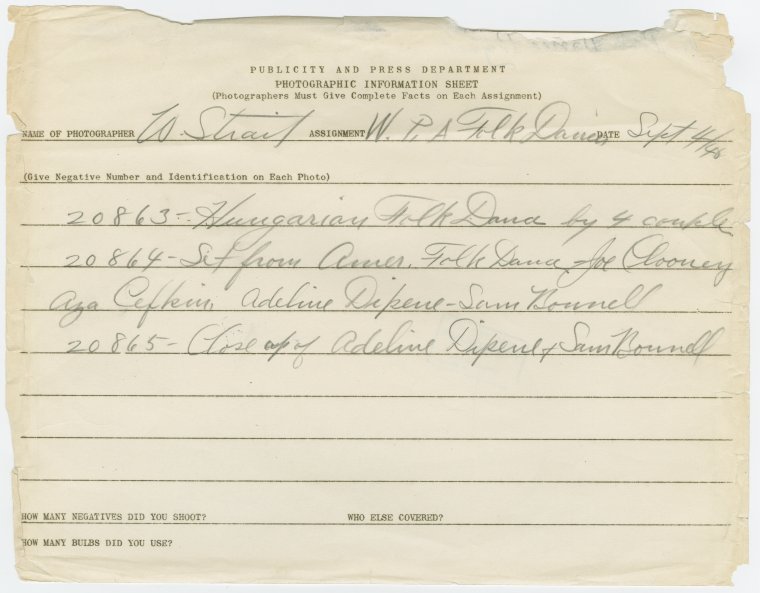 PUBLICITY AND PRESS DEPARTMENT
PHOTOGRAPHIC INFORMATION SHEET
(Photographers Must Give Complete Facts on Each Assignment)
NAME OF PHOTOGRAPHER W. Strait ASSIGNMENT W. P. A Folk Dance DATE Sept 4/40
(Give Negative Number and Identification on Each Photo)
20863- Hungarian Folk Dance by 4 couple
20864- Set from Amer. Folk Dance - Joe Clooney
Aza Cefkin, Adeline Dipene - Sam Bonnell
20865- Close up of Adeline Dipene + Sam Bonnell
HOW MANY NEGATIVES DID YOU SHOOT? WHO ELSE COVERED?
HOW MANY BULBS DID YOU USE?